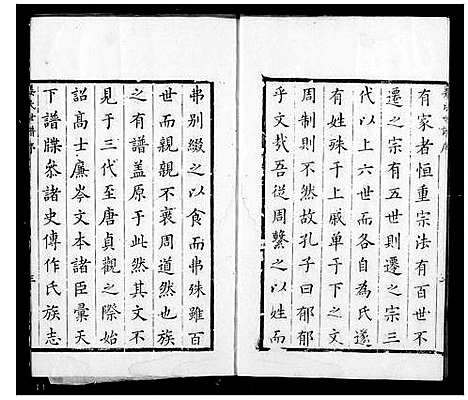 有家者恒重宗法有百世不
遷之宗有五世則遷之宗三
代以上六世而各自為氏遂
有姓殊于上戚單于下之文
周制則不然故孔子曰郁郁
乎文哉吾從周繫之以姓而
弗別綴之以食而弗殊雖百
世而親親不衰周道然也族
之有譜蓋原于此然其文不
見于三代至唐貞觀之際始
詔高士廉岑文本諸臣彙天
下譜牒叅諸史傳作氏族志
氏世譜序
三